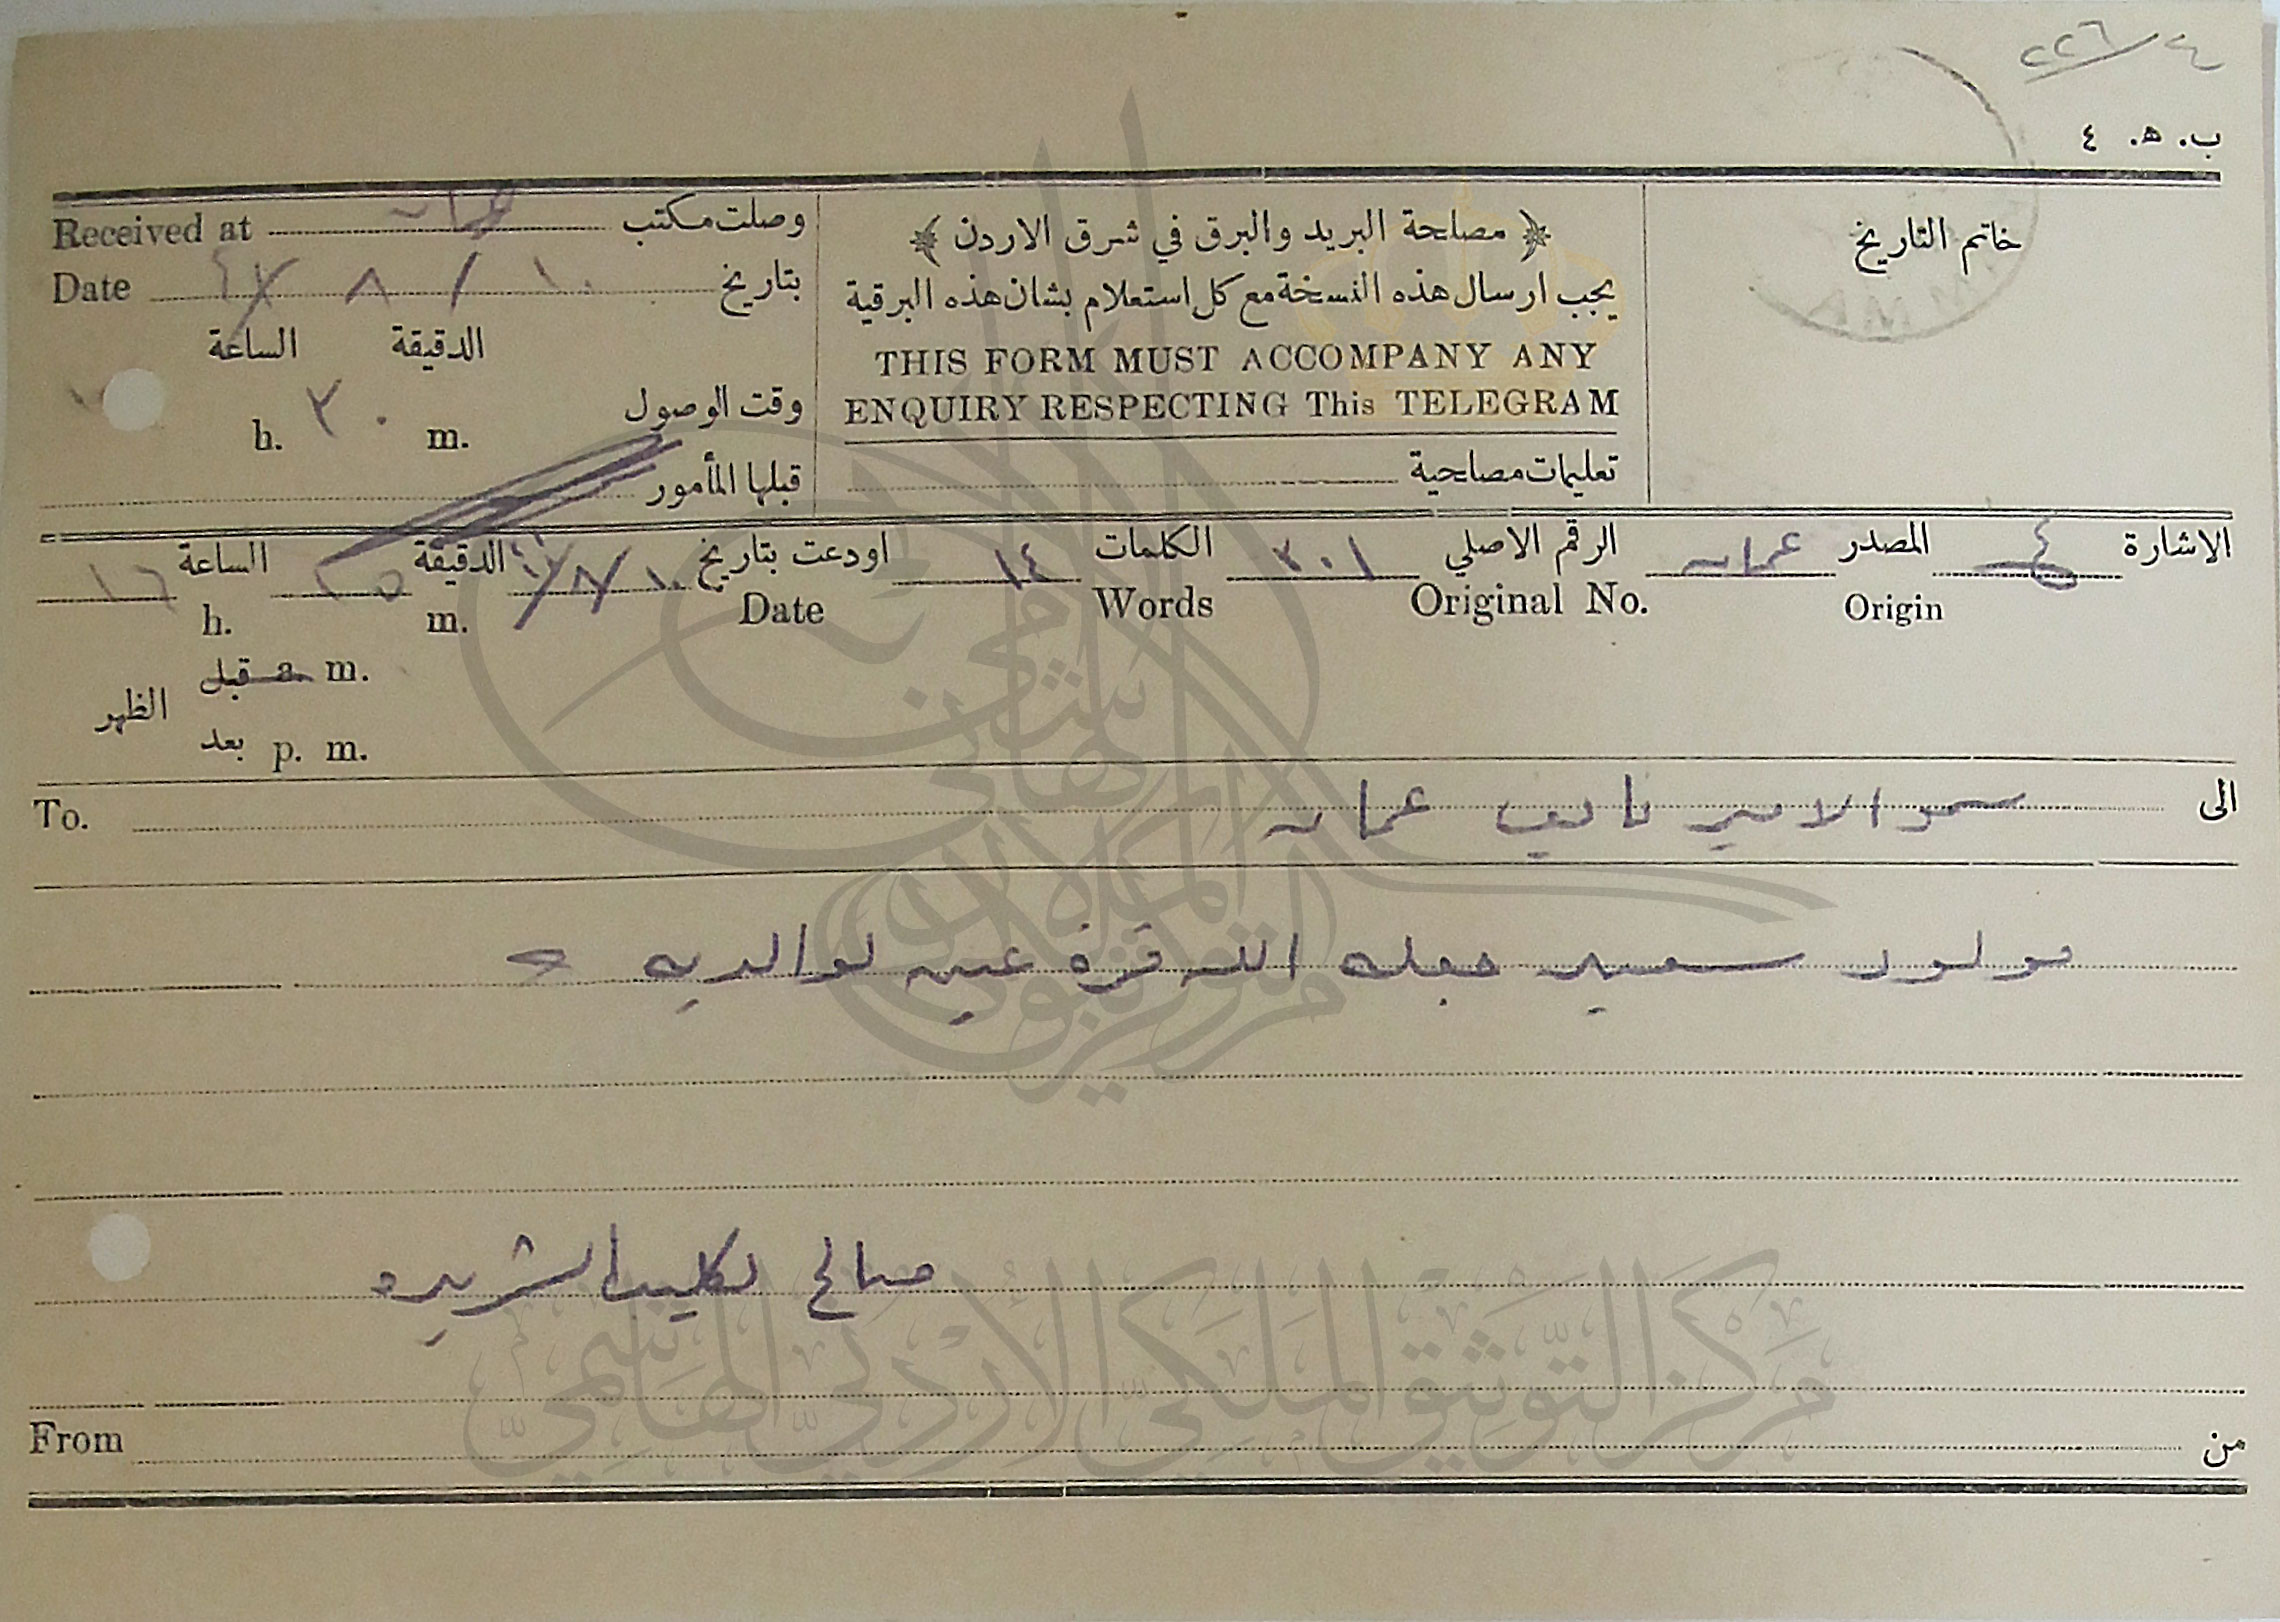 ٢٢٦/٤
ب. ه. ٤
خاتم التاريخ
﴿ مصلحة البريد والبرق في شرق الاردن ﴾
يجب ارسال هذه النسخة مع كل استعلام بشان هذه البرقية
THIS FORM MUST ACCOMPANY ANY
ENQUIRY RESPECTING This TELEGRAM
تعليمات مصلحية
وصلت مكتب عمان Received at
بتاريخ ١٠ / ٨ / ٤٧ Date
الدقيقة الساعة
وقت الوصول m. ٣٠ h.
قبلها المأمور
الاشارة المصدر عمان الرقم الاصلي ٣٠١ الكلمات ١٤ اودعت بتاريخ ١٠/٨/٤٧ الدقيقة ٢٥ الساعة ١٦
Origin Original No. Words Date m. h.
قبل a. m.
الظهر
بعد p. m.
الى سمو الامير نايف عمان To.
مولود سعيد جعله الله قرة عين لوالديه
صالح الشريده
من From
مركز التوثيق الملكي الأردني الهاشمي